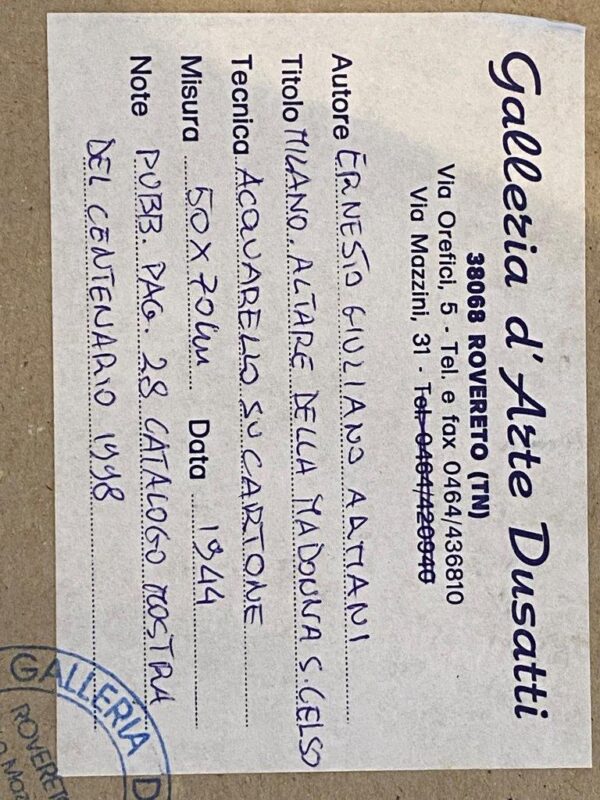 Galleria d'Arte Dusatti
38068 ROVERETO (TN)
Via Orefici, 5 - Tel. e fax 0464/436810
Via Mazzini, 31 - Tel. 0464/420940
Autore ERNESTO GIULIANO ARMANI
Titolo MILANO. ALTARE DELLA MADONNA S. CELSO
Tecnica ACQUARELLO SU CARTONE
Misura 50X70cm Data 1944
Note PUBB. PAG. 28 CATALOGO MOSTRA
DEL CENTENARIO 1998
GALLERIA D
ROVERETO